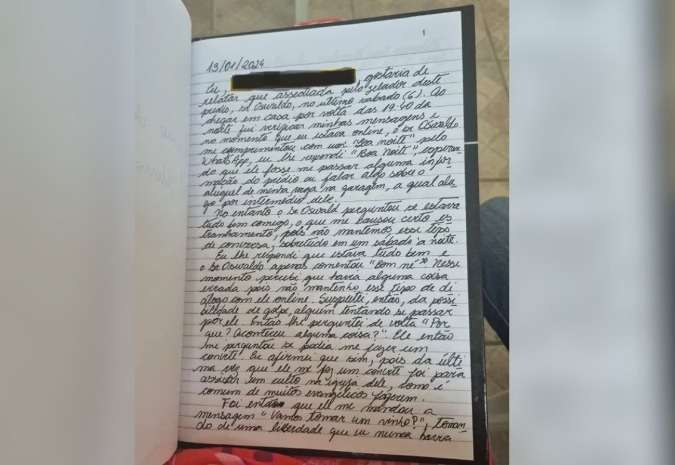 1
13/01/2024
Eu, gostaria de
relatar que assediada pelo zelador deste
prédio, sr Oswaldo, no último sábado (6). Ao
chegar em casa por volta das 19:40 da
noite fui verificar minhas mensagens e
no momento que eu estava online, o sr Oswaldo
me cumprimentou com uma "Boa noite" pelo
WhatsApp, eu lhe respondi "Boa Noite" esperan
do que ele fosse me passar alguma infor
mação do prédio ou falar algo sobre o
aluguel de minha vaga na garagem, a qual alu
go por intermédio dele.
No entanto o sr Oswald perguntou se estava
tudo bem comigo, o que me causou certo es
tranhamento, pois não mantemos esse tipo
de conversa, sobretudo em um sábado à noite.
Eu lhe respondi que estava tudo bem e
o sr Oswaldo apenas comentou "Bom né". Nesse
momento percebi que havia alguma coisa
errada pois não mantenho esse tipo de di
álogo com ele online. Suspeitei, então, da possi
bilidade de golpe, alguém tentando se passar
por ele. Então lhe perguntei de volta "Por
que? Aconteceu alguma coisa?". Ele então
me perguntou se podia me fazer um
convite. Eu afirmei que sim, pois da últi
ma vez que ele me fez um convite foi para
assistir um culto na igreja dele, como é
comum de muitos evangélicos fazerem.
Foi então que ele me mandou a
mensagem "Vamos tomar um vinho?", toman
do de uma liberdade que eu nunca havia